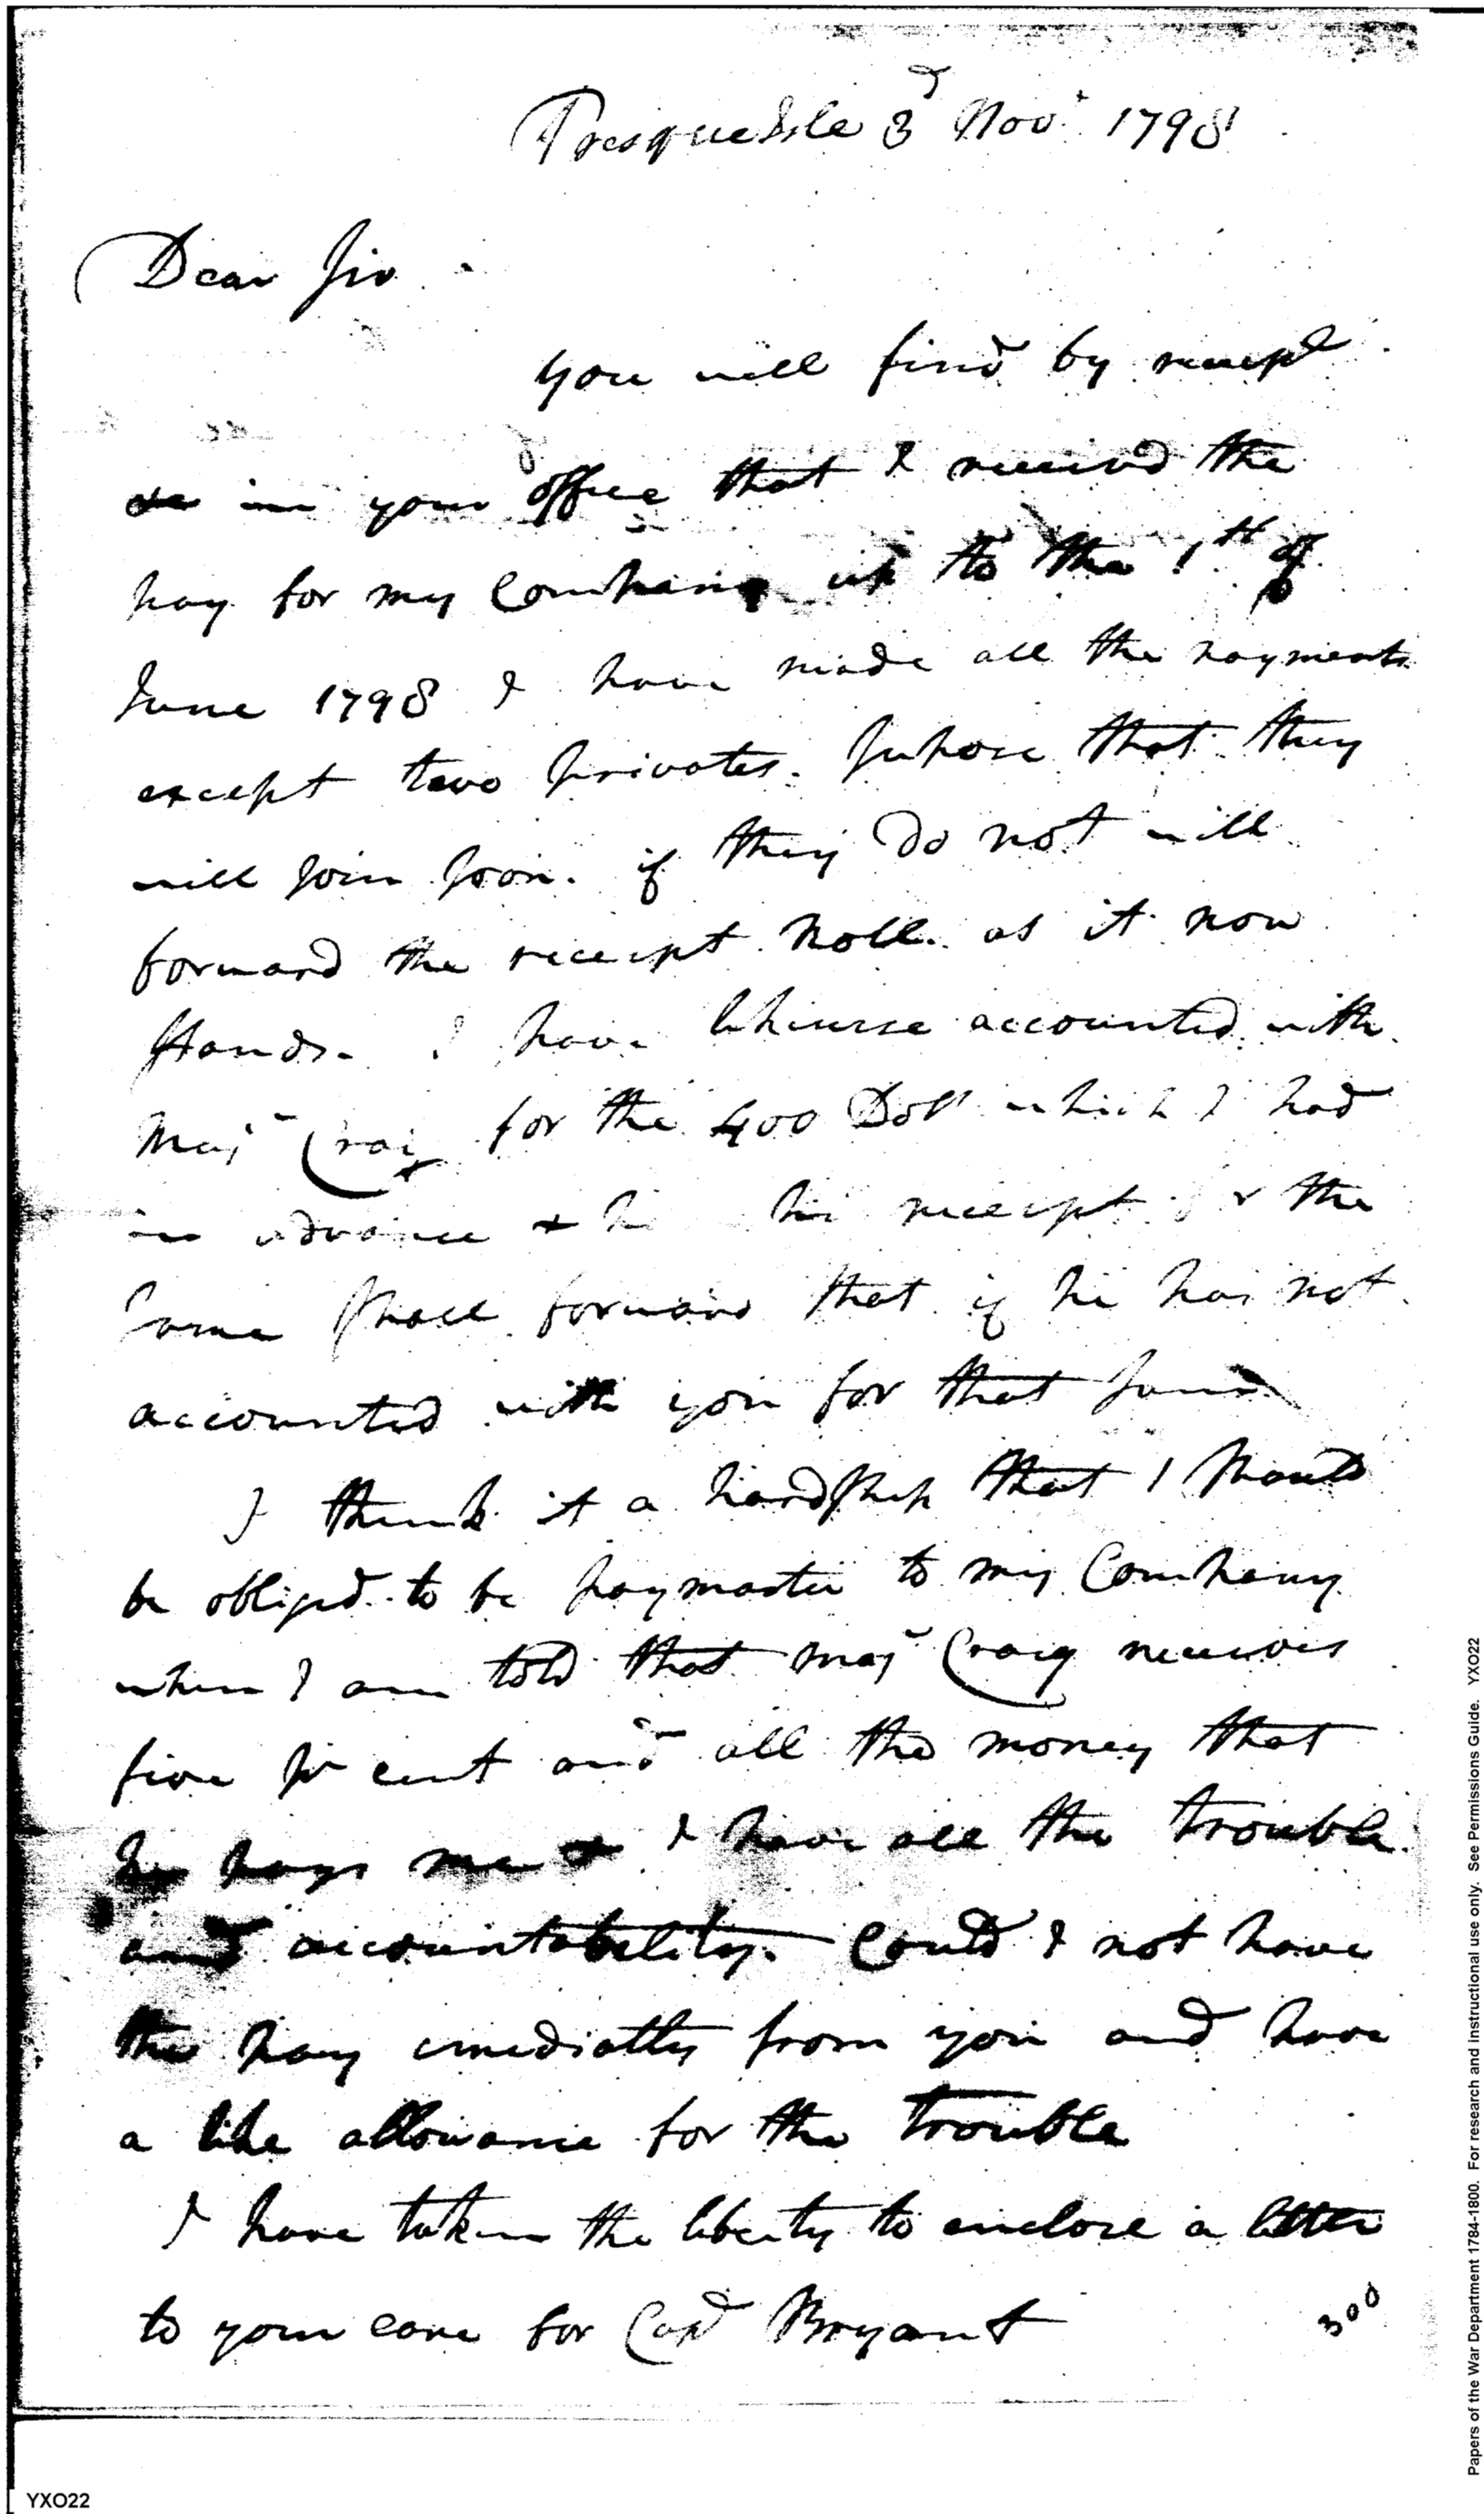 Presque Isle 3d Novr 1798
Dear Sir
you will find by receipt
in your office that I received the
pay for my Company up to the 1th of
June 1798 I have made all the payments
except two privates. Supose that they
will join soon. if they do not will
forward the receipt Roll. as it now
Stands. I have likewise accounted with
Majr Craig for the 400 Dolls which I had
in advance & his receipt for the
same shall forward that if he has not
accounted with you for that sum
I think it a hardship that I should
be obliged to be paymaster to my Company
when I am told that Majr Craig receives
five pr cent and all the money that
he pays me & I have all the trouble
and accountability. Could I not have
the pay imediatly from you and have
a like allowance for the trouble
I have taken the liberty to enclose a letter
to your care for Capt Bryant
300
Papers of the War Department 1784-1800. For research and instructional use only. See Permissions Guide. YXO22
YXO22